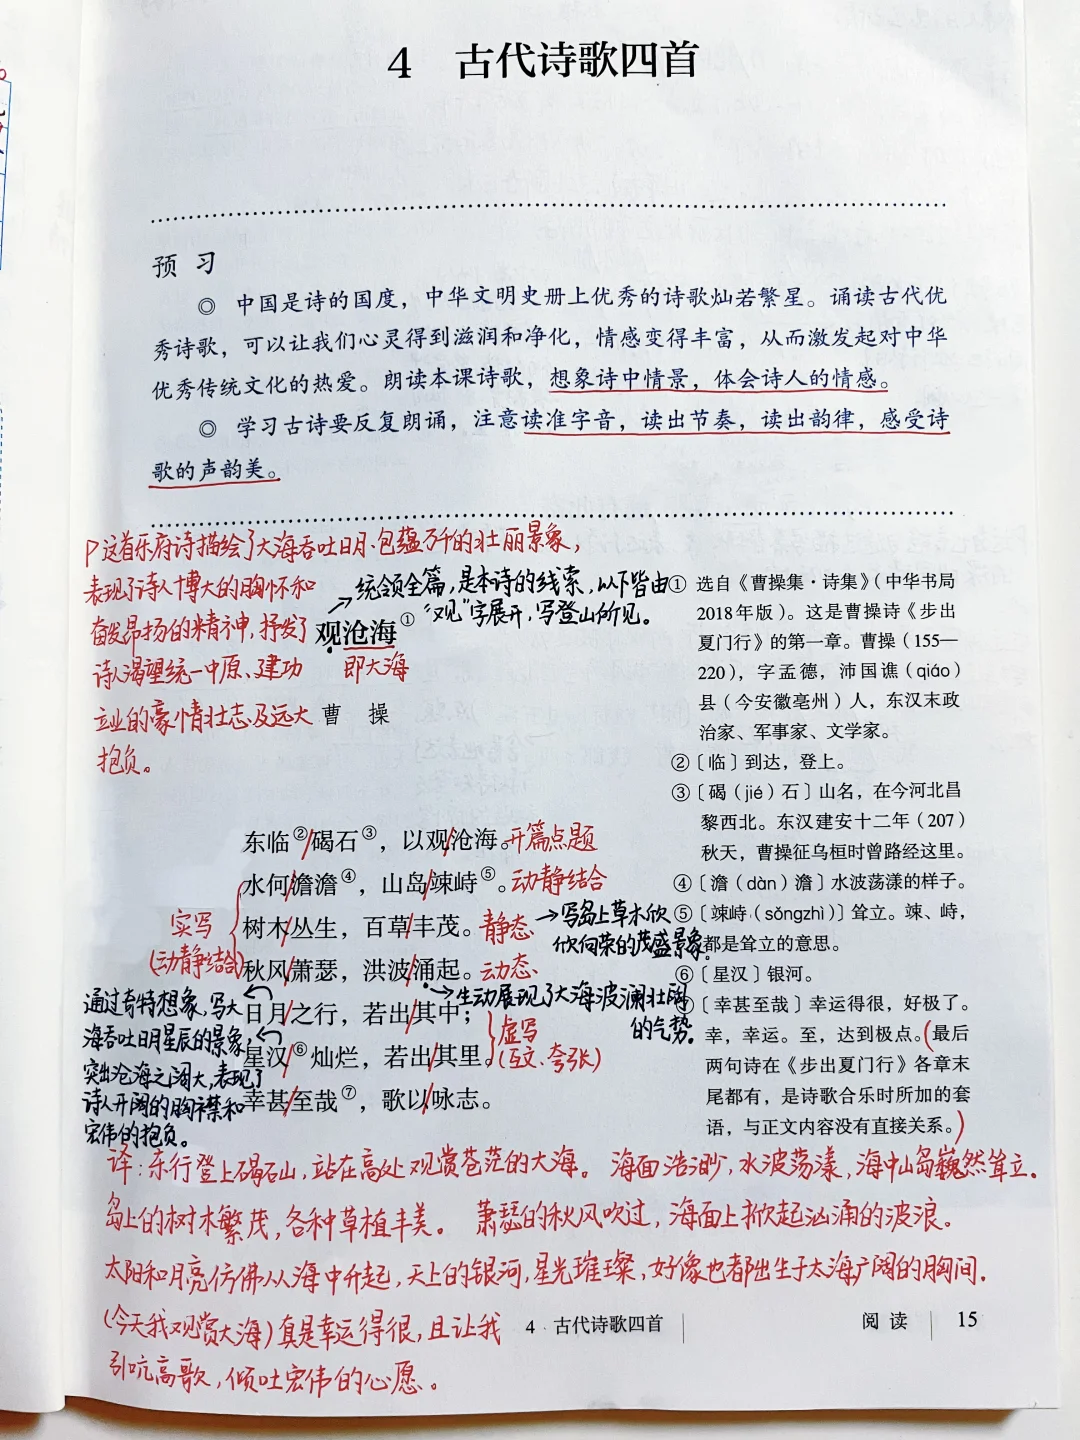 4 古代诗歌四首
预 习
◎ 中国是诗的国度，中华文明史册上优秀的诗歌灿若繁星。诵读古代优
秀诗歌，可以让我们心灵得到滋润和净化，情感变得丰富，从而激发起对中华
优秀传统文化的热爱。朗读本课诗歌，想象诗中情景，体会诗人的情感。
◎ 学习古诗要反复朗诵，注意读准字音，读出节奏，读出韵律，感受诗
歌的声韵美。
这首乐府诗描绘了大海吞吐日月、包蕴万千的壮丽景象，
表现了诗人博大的胸怀和
奋发昂扬的精神，抒发了
诗人渴望统一中原、建功
立业的豪情壮志及远大
抱负。
统领全篇，是本诗的线索，以下皆由
“观”字展开，写登山所见。
观沧海①
即大海
曹 操
东临②/碣石③，以观/沧海。开篇点题
水何/澹澹④，山岛/竦峙⑤。动静结合
树木/丛生，百草/丰茂。静态
→写岛上草木欣
欣向荣的茂盛景象。
实写
(动静结合)
秋风/萧瑟，洪波/涌起。动态
→生动展现了大海波澜壮阔
的气势。
日月/之行，若出/其中；
星汉/⑥灿烂，若出/其里。
虚写
(互文、夸张)
幸甚/至哉⑦，歌以/咏志。
通过奇特想象，写大
海吞吐日月星辰的景象，
突出沧海之阔大，表现了
诗人开阔的胸襟和
宏伟的抱负。
① 选自《曹操集·诗集》（中华书局
2018年版）。这是曹操诗《步出
夏门行》的第一章。曹操（155—
220），字孟德，沛国谯（qiáo）
县（今安徽亳州）人，东汉末政
治家、军事家、文学家。
②〔临〕到达，登上。
③〔碣（jié）石〕山名，在今河北昌
黎西北。东汉建安十二年（207）
秋天，曹操征乌桓时曾路经这里。
④〔澹（dàn）澹〕水波荡漾的样子。
⑤〔竦峙（sǒngzhì）〕耸立。竦、峙，
都是耸立的意思。
⑥〔星汉〕银河。
⑦〔幸甚至哉〕幸运得很，好极了。
幸，幸运。至，达到极点。(最后
两句诗在《步出夏门行》各章末
尾都有，是诗歌合乐时所加的套
语，与正文内容没有直接关系。)
译：东行登上碣石山，站在高处观赏苍茫的大海。海面浩渺，水波荡漾，海中山岛巍然耸立。
岛上的树木繁茂，各种草植丰美。萧瑟的秋风吹过，海面上掀起汹涌的波浪。
太阳和月亮仿佛从海中升起，天上的银河，星光璀璨，好像也都出生于大海广阔的胸间。
(今天我观赏大海)真是幸运得很，且让我
引吭高歌，倾吐宏伟的心愿。
4 古代诗歌四首
阅 读 15